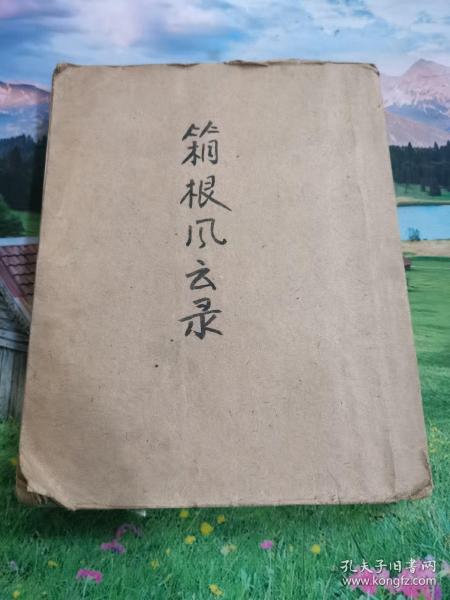 箱根风云录
孔夫子旧书网
www.kongfz.com